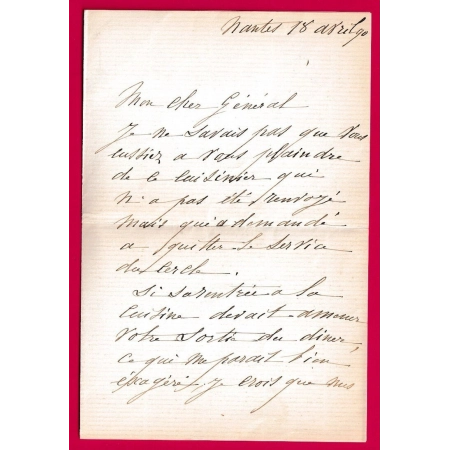 Nantes 18 avril 90
Mon cher Général
Je ne savais pas que vous
eussiez a vous plaindre
de ce cuisinier qui
n'a pas été renvoyé
mais qui a demandé
a quitter le service
du Cercle.
Si sa rentrée a la
cuisine devait amener
votre sortie du diner,
ce qui me parait bien
éxagéré, je crois que mes